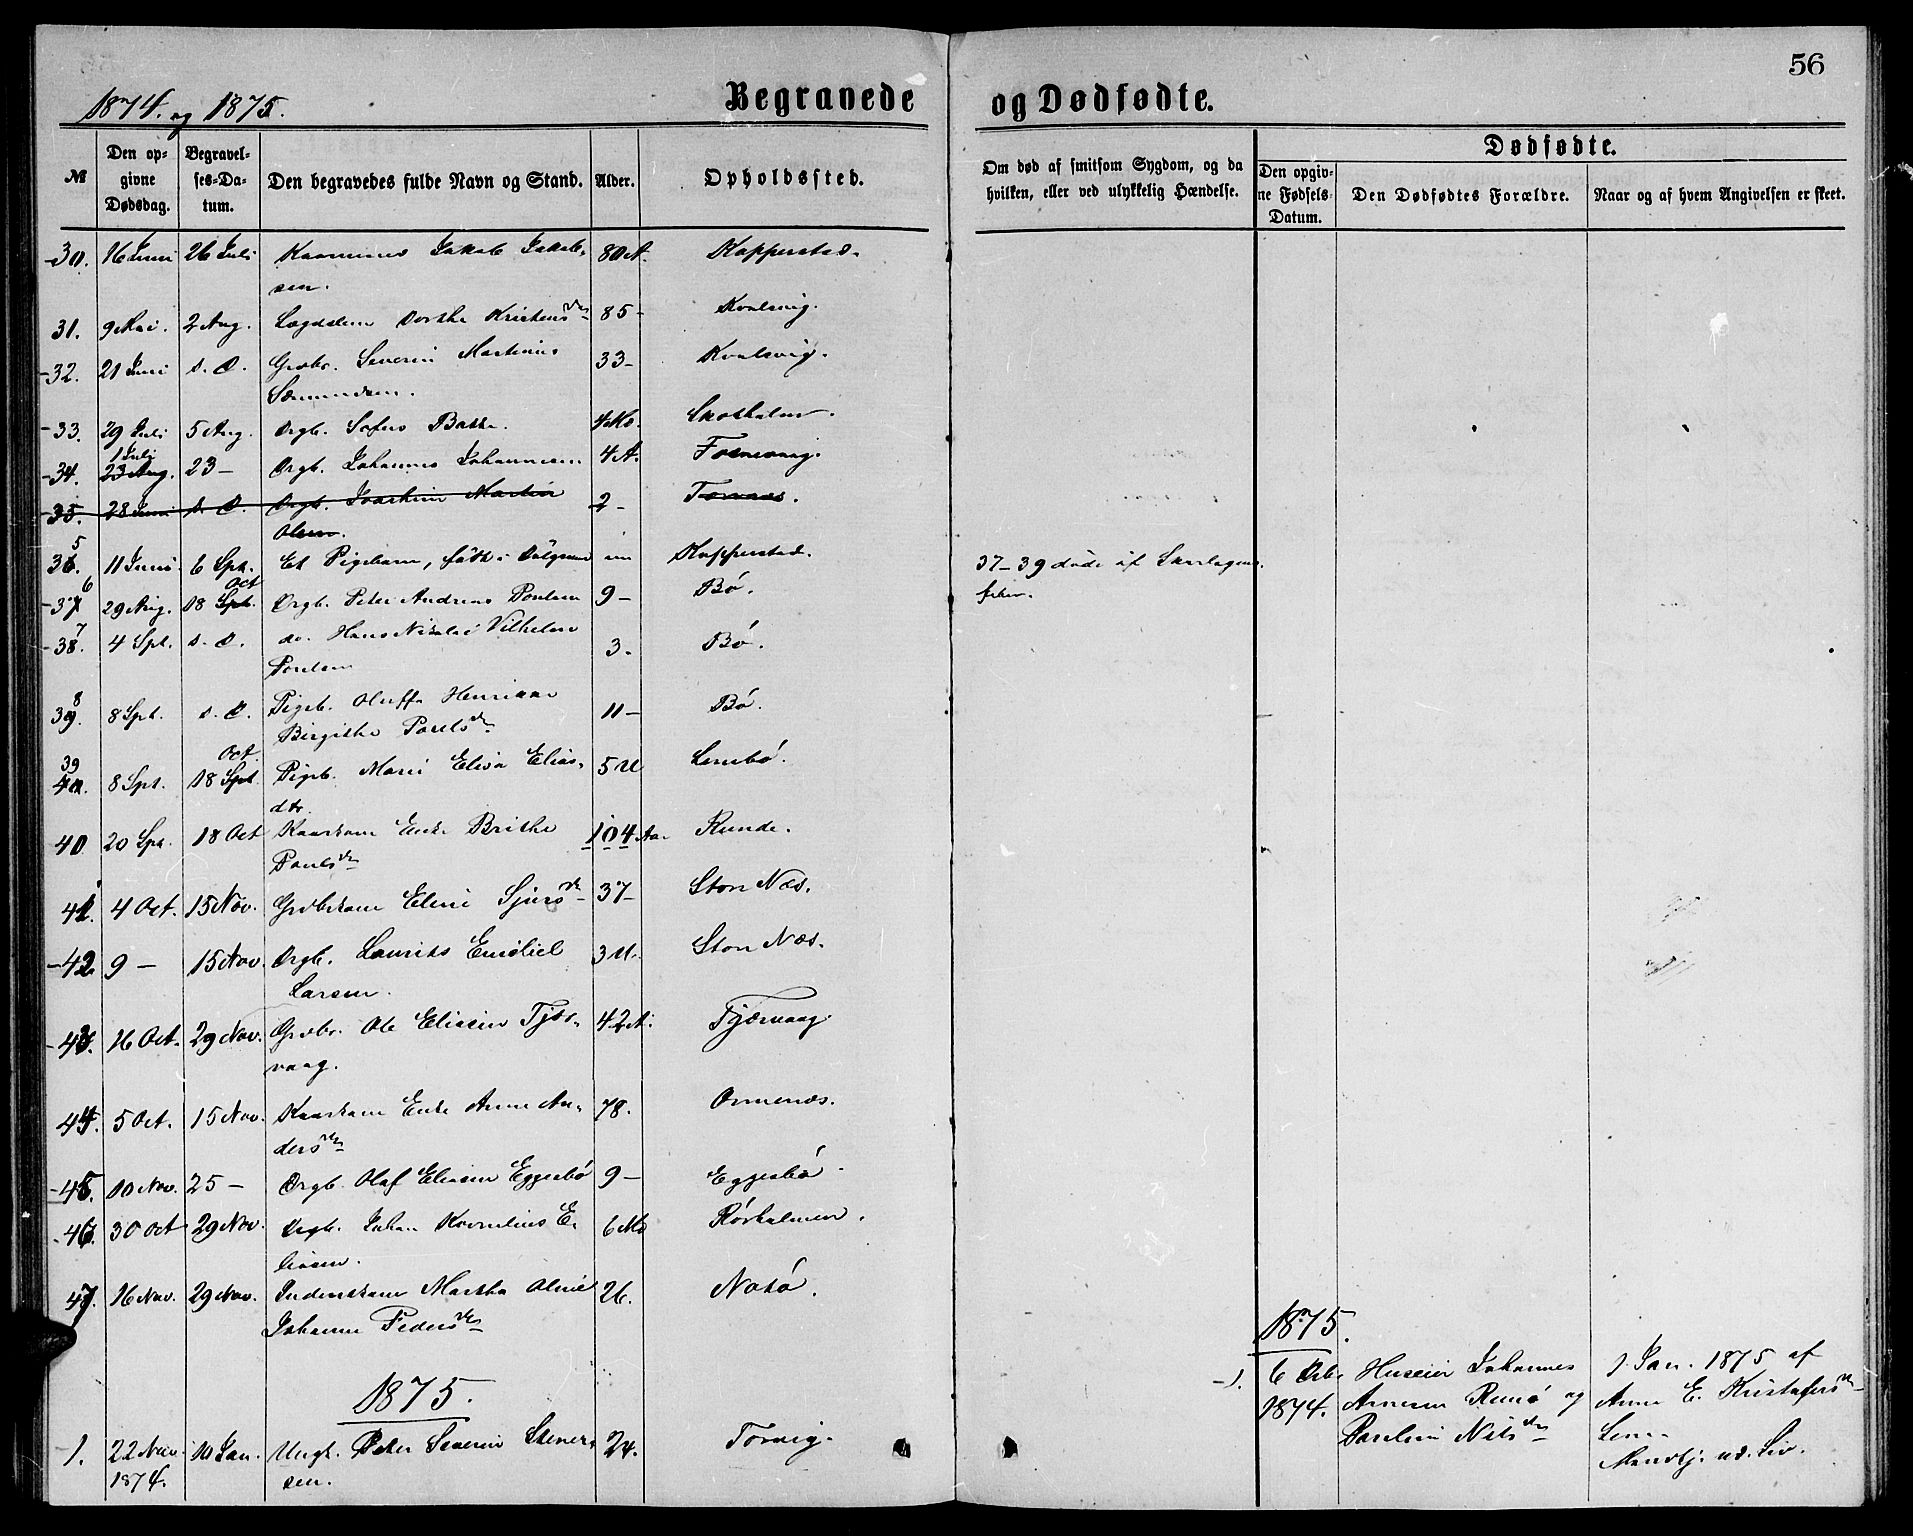 56
1874. og 1875.
Begravede og Dødfødte.
№
Den opgivne Dødsdag.
Begravelses-Datum.
Den begravedes fulde Navn og Stand.
Alder.
Opholdssted.
Om død af smitsom Sygdom, og da
hvilken, eller ved ulykkelig Hændelse.
Dødfødte.
Den opgivne Fødsels-Datum.
Den Dødfødtes Forældre.
Naar og af hvem Angivelsen er skeet.
30. 16 Juni 26 Juli Jakob Jakob- 80 A. Kopperstad.
sen.
31. 9 Mai. 2 Aug. Lægdslem Dorthe Kristensdtr 85 - Kvalsvig.
32. 21 Juni s. D. Grdbr. Severin Martinus 33 - Kvalsvig.
Sæmundsen.
33. 29 Juli 5 Aug. Drgb. Sofus Bakke. 4 Mo. Skotholm.
1 Juli
34. 23 Aug. 23 - Drgb. Johannes Johannesen 4 A. Fosnavaag.
35. 28 Juni s. D. Drgb. Joachim Martin 2 -
Olsen.
5
36. 11 Juni. 6 Spt. Et Pigebarn, født i Dølgsmaal Kopperstad.
6 Oct
37 29 Aug. 18 Spt. Drgb. Peter Andreas Poulsen 9 - Bø. 37-39 døde af Skarlagens-
feber.
7
38. 4 Spt. s. D. do. Hans Nikolai Vilhelm 3. Bø.
Poulsen
8
39. 8 Spt. s. D. Pigeb. Oluffa Henriane 11 - Bø.
Birgithe Poulsdtr
39 Oct.
40. 8 Spt. 18 Spt Pigeb. Marie Elisa Elias- 5 U Leinebø.
dtr.
40 20 Spt. 18 Oct Enke Brithe 104 Aar Runde.
Poulsdtr
41. 4 Oct. 15 Nov. Grdbrkone Eline Sjursdtr 37 - Ston Næs.
42 9 - 15 Nov. Drgb. Laurits Emiliel 3 U. Ston Næs.
Larsen.
43. 16 Oct. 29 Nov. Grdbr. Ole Eliasen Tjør- 42 A. Tjørvaag.
vaag.
44. 5 Oct. 15 Nov. Enke Anne An- 78. Ormenæs.
dersdtr
45. 10 Nov. 25 - Drgb. Olaf Eliasen Eggesbø 9 - Eggesbø.
46. 30 Oct 29 Nov. Drgb. Johan Kornelius E- 6 Mo
liasen.
47. 16 Nov. 29 Nov. Inderstkone Martha Oline 26.
Johanne Pedersdtr
1875.
1. 22 Nov. 10 Jan. Ungk. Peter Severin Steners- 24. Torvig.
1874. sen.
1875.
1. 6 Dcbr. Huseier Johannes 1 Jan. 1875 af
1874. Arnesen Remø og Anne E. Kristofersdtr
Pouline Nilsdtr
Mandkj. ud. Liv.